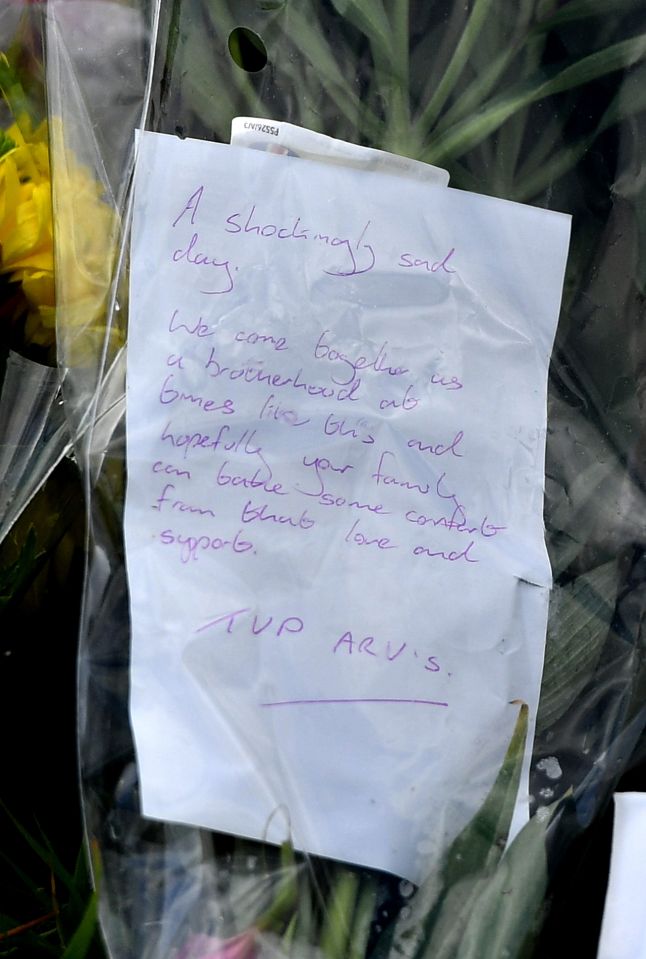 P5526/A/3
A shockingly sad
day.
We come together as
a brotherhood at
times like this and
hopefully your family
can take some comfort
from that love and
support.
TVP ARV's.